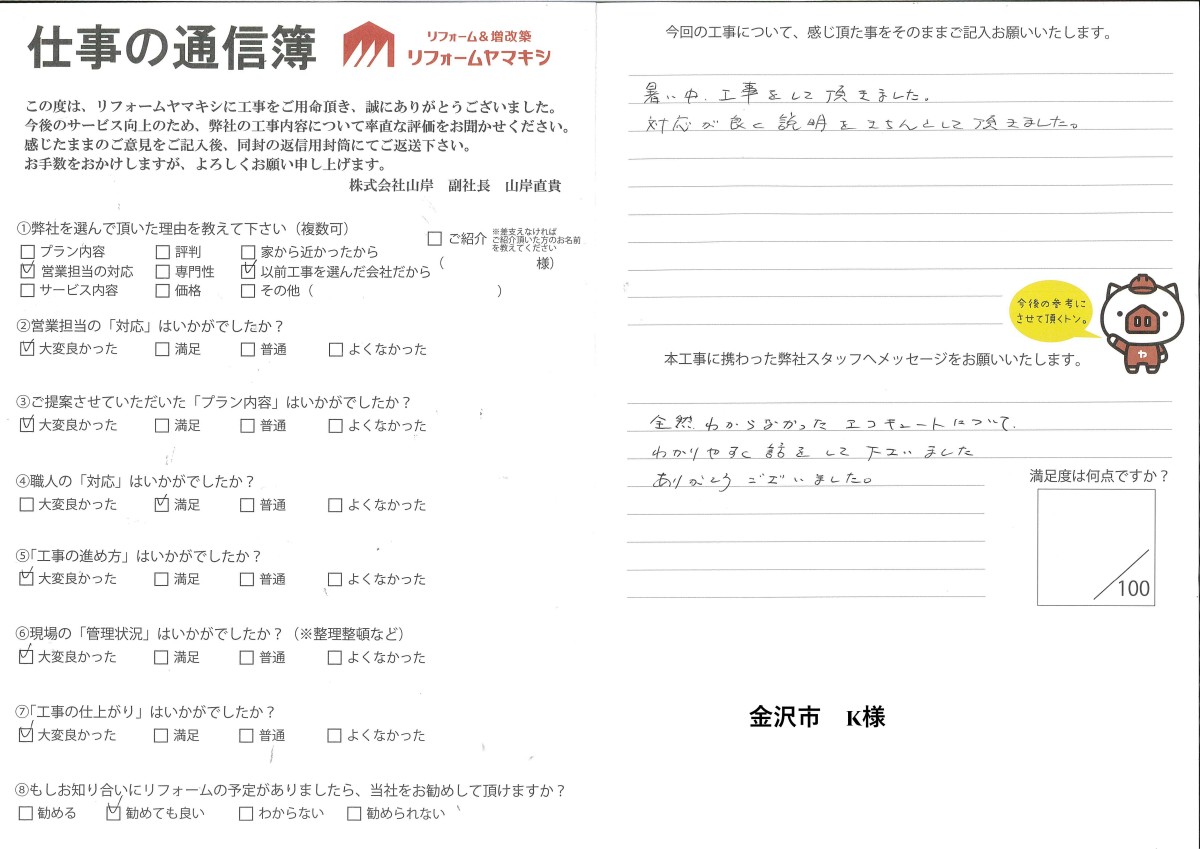 仕事の通信簿
リフォーム&増改築
リフォームヤマキシ
この度は、リフォームヤマキシに工事をご用命頂き、誠にありがとうございました。
今後のサービス向上のため、弊社の工事内容について率直な評価をお聞かせください。
感じたままのご意見をご記入後、同封の返信用封筒にてご返送下さい。
お手数をおかけしますが、よろしくお願い申し上げます。
株式会社山岸　副社長　山岸直貴
①弊社を選んで頂いた理由を教えて下さい（複数可）
□ プラン内容 □ 評判 □ 家から近かったから □ ご紹介 ※差支えなければ
ご紹介頂いた方のお名前
を教えてください
（　　　　　　様）
☑ 営業担当の対応 □ 専門性 ☑ 以前工事を選んだ会社だから
□ サービス内容 □ 価格 □ その他（　　　　　　　　　　　　）
②営業担当の「対応」はいかがでしたか？
☑ 大変良かった □ 満足 □ 普通 □ よくなかった
③ご提案させていただいた「プラン内容」はいかがでしたか？
☑ 大変良かった □ 満足 □ 普通 □ よくなかった
④職人の「対応」はいかがでしたか？
□ 大変良かった ☑ 満足 □ 普通 □ よくなかった
⑤「工事の進め方」はいかがでしたか？
☑ 大変良かった □ 満足 □ 普通 □ よくなかった
⑥現場の「管理状況」はいかがでしたか？（※整理整頓など）
☑ 大変良かった □ 満足 □ 普通 □ よくなかった
⑦「工事の仕上がり」はいかがでしたか？
☑ 大変良かった □ 満足 □ 普通 □ よくなかった
⑧もしお知り合いにリフォームの予定がありましたら、当社をお勧めして頂けますか？
□ 勧める ☑ 勧めても良い □ わからない □ 勧められない
今回の工事について、感じ頂た事をそのままご記入お願いいたします。
暑い中、工事をして頂きました。
対応が良く説明をきちんとして頂きました。
今後の参考に
させて頂くトン。
ヤ
本工事に携わった弊社スタッフへメッセージをお願いいたします。
全然、わからなかったエコキュートについて、
わかりやすく話をして下さいました
ありがとうございました。
満足度は何点ですか？
/100
金沢市　K様